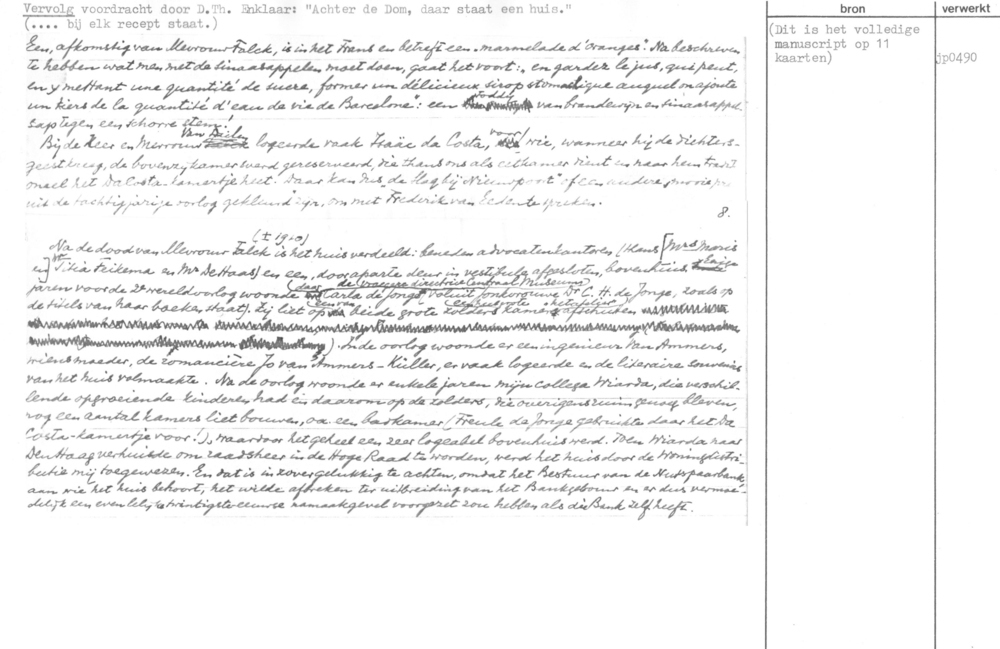 Vervolg voordracht door D.Th. Enklaar: "Achter de Dom, daar staat een huis."
(.... bij elk recept staat.)
bron
verwerkt
(Dit is het volledige
manuscript op 11
kaarten)
jp0490
Een, afkomstig van Mevrouw Falck, is in het Frans en betreft een "marmelade d'oranges". Na beschreven
te hebben wat men met de sinaasappelen moet doen, gaat het voort: "en gardez le jus, qui peut,
en y mettant une quantité de sucre, former un délicieux sirop stomachique auquel on ajoute
un tiers de la quantité d'eau de vie de Barcelone: een toddy van brandewijn en sinaasappel
sap tegen een schorre stem!
Bij de Heer en Mevrouw Van Dielen logeerde vaak Isaäc da Costa, voor wie, wanneer hij de dichters-
geest kreeg, de bovenzijkamer werd gereserveerd, die thans ons als eetkamer dient en naar hem traditi
oneel het Da Costa-kamertje heet. Daar kan dus "de Slag bij Nieuwpoort" of een andere
uit de tachtigjarige oorlog geklund zijn, om met Frederik van Eeden te spreken.
8.
Na de dood van Mevrouw Falck (± 1910) is het huis verdeeld: beneden advocatenkantoren (thans Mrs Maris
en Titia Feikema en Mr De Haas) en een, door aparte deur in vestibule afgesloten, bovenhuis. Enige
jaren voor de 2e wereldoorlog woonde daar de vroegere directrice Centraal Museum Carla de Jonge (voluit Jonkvrouwe Dr C. H. de Jonge, zoals op
de titels van haar boeken staat). Zij liet op een van beide grote zolders kamers afschutten
). In de oorlog woonde er een ingenieur Van Ammers,
wiens moeder, de romancière Jo van Ammers-Küller, er vaak logeerde en de literaire souvenirs
van het huis volmaakte. Na de oorlog woonde er enkele jaren mijn collega Wiarda, die verschil-
lende opgroeiende kinderen had en daarom op de zolders, die overigens ruim genoeg bleven,
nog een aantal kamers liet bouwen, o.a. een badkamer (Freule de Jonge gebruikte daar het Da
Costa-kamertje voor!), waardoor het geheel een zeer logeabel bovenhuis werd. Toen Wiarda naar
Den Haag verhuisde om raadsheer in de Hoge Raad te worden, werd het huis door de Woningdistri-
butie mij toegewezen. En dat is in zover gelukkig te achten, omdat het Bestuur van de Nutsspaarbank
aan wie het huis behoort, het wilde afbreken ter uitbreiding van het Bankgebouw en er dus vermoe-
delijk een even lelijke twintigste eeuwse namaakgevel voorgezet zou hebben als die Bank zelf heeft.